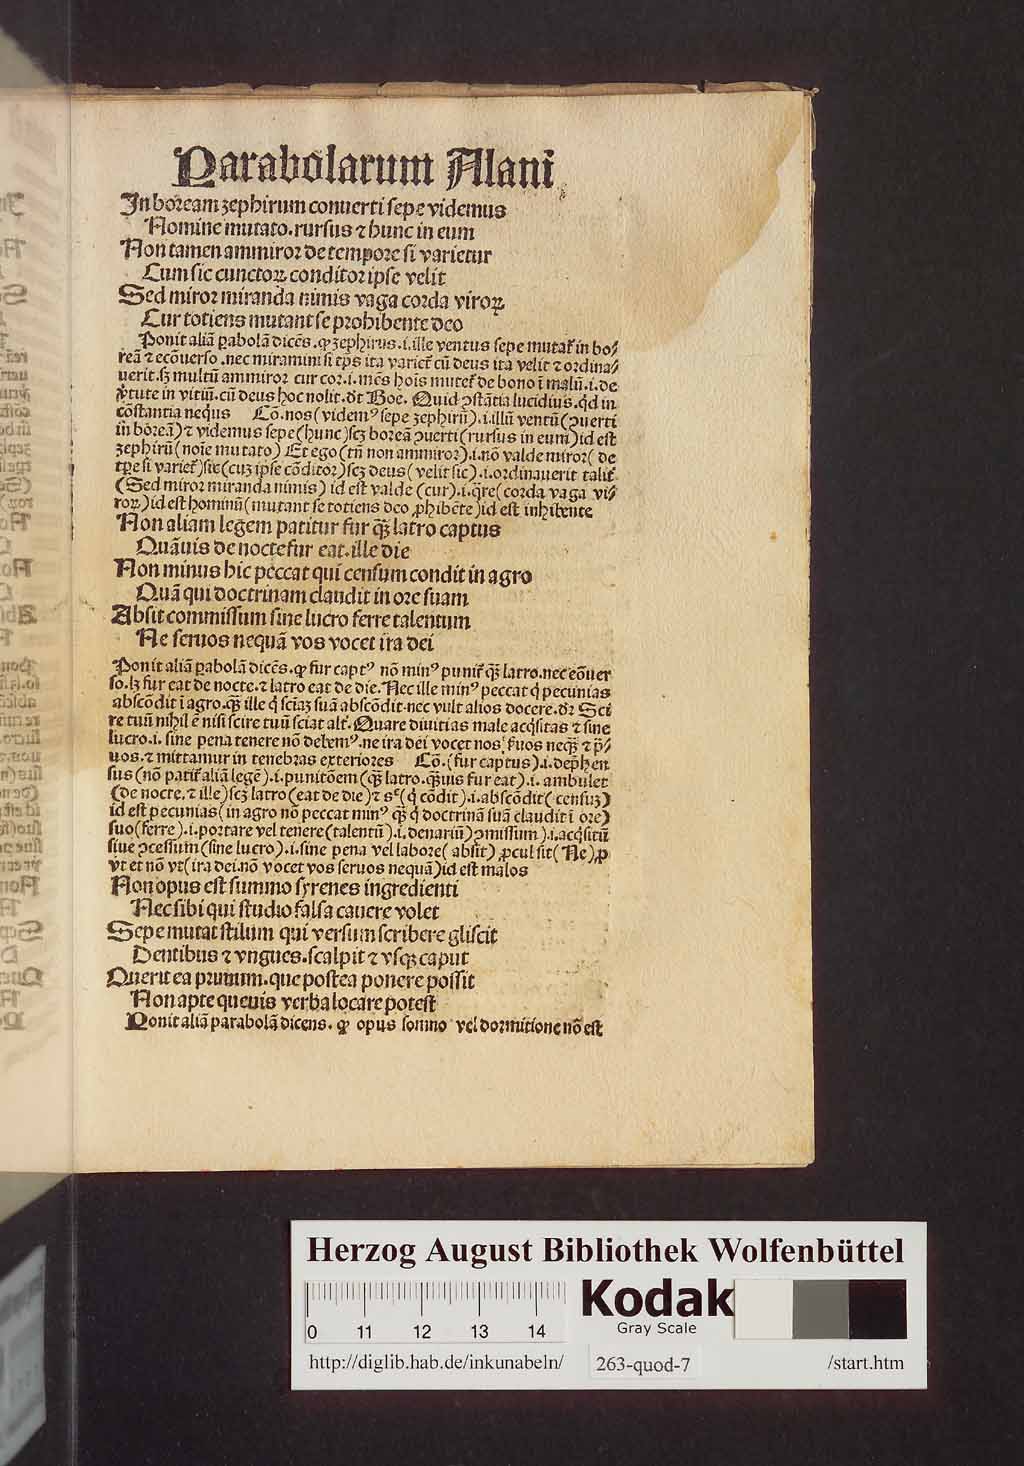 Parabolarum Alani
In boream zephirum conuerti sepe videmus
Nomine mutato. rursus ⁊ hunc in eum
Non tamen ammiror de tempore si varietur
Cum sic cunctoꝝ conditor ipse velit
Sed miror miranda nimis vaga corda viroꝝ
Cur totiens mutant se prohibente deo
Ponit aliā ꝑabolā dicēs. ꝙ zephirus .i. ille ventus sepe mutat᷑ in bo/
reā ⁊ ecōuerso .nec miramini si tꝑs ita variet᷑ cū deus ita velit ⁊ ordina/
uerit. sꝫ multū ammiror cur cor .i. mēs hoīs mutet᷑ de bono ī malū .i. de
v̓tute in vitiū. cū deus hoc nolit. d̄t Boe. Quid ꝯstātia lucidius. qd in
cōstantia nequius Cō. nos (videmꝰ sepe zephirū) .i. illū ventū (ꝯuerti
in boreā) ⁊ videmus sepe (hunc) scꝫ boreā ꝯuerti (rursus in eum) id est
zephirū (noīe mutato) Et ego (tn̄ non ammiror) .i. nō valde miror (de
tꝑe si variet᷑) sic (cuꝫ ipse cōditor) scꝫ deus (velit sic) .i. ordinauerit talit᷑
(Sed miror miranda nimis) id est valde (cur) .i. q̄re (corda vaga vi/
roꝝ) id est hominū (mutant se totiens deo ꝓhibēte) id est inhibente
Non aliam legem patitur fur qꝫ latro captus
Quāuis de nocte fur eat. ille die
Non minus hic peccat qui censum condit in agro
Quā qui doctrinam claudit in ore suam
Absit commissum sine lucro ferre talentum
Ne seruos nequā vos vocet ira dei
Ponit aliā ꝑabolā dicēs. ꝙ fur captꝰ nō minꝰ punit᷑ qꝫ latro. nec eōuer
so. lꝫ fur eat de nocte. ⁊ latro eat de die. Nec ille minꝰ peccat q̇ pecunias
abscōdit ī agro. qꝫ ille q̇ sciaꝫ suā abscōdit. nec vult alios docere. d̄r Sci
re tuū nihil ē nisi scire tuū sciat alt᷑. Quare diuitias male acq̇sitas ⁊ sine
lucro .i. sine pena tenere nō debemꝰ. ne ira dei vocet nos s̓uos neqꝫ ⁊ p̄/
uos. ⁊ mittamur in tenebras exteriores Cō. (fur captus) .i. dep̄hen
sus (nō patit᷑ aliā legē) .i. punitōem (qꝫ latro. qꝫuis fur eat) .i. ambulet
(de nocte. ⁊ ille) scꝫ latro (eat de die) ⁊ sᶜ (q̇ cōdit) .i. abscōdit (censuꝫ)
id est pecunias (in agro nō peccat minꝰ qꝫ q̇ doctrinā suā claudit ī ore)
suo (ferre) .i. portare vel tenere (talentū) .i. denariū) ꝯmissum) .i. acq̇sitū
siue ꝯcessum (sine lucro) .i. sine pena vel labore (absit) ꝓcul sit (Ne) ꝓ
vt et nō vt (ira dei. nō vocet vos seruos nequā) id est malos
Non opus est summo syrenes ingredienti
Nec sibi qui studio falsa cauere volet
Sepe mutat stilum qui versum scribere gliscit
Dentibus ⁊ vngues. scalpit ⁊ vsqꝫ caput
Querit ea primum. que postea ponere possit
Non apte queuis verba locare potest
Ponit aliā parabolā dicens. ꝙ opus somno vel dormitione nō est
Herzog August Bibliothek Wolfenbüttel
0 11 12 13 14
Kodak
Gray Scale
http://diglib.hab.de/inkunabeln/ 263-quod-7 /start.htm